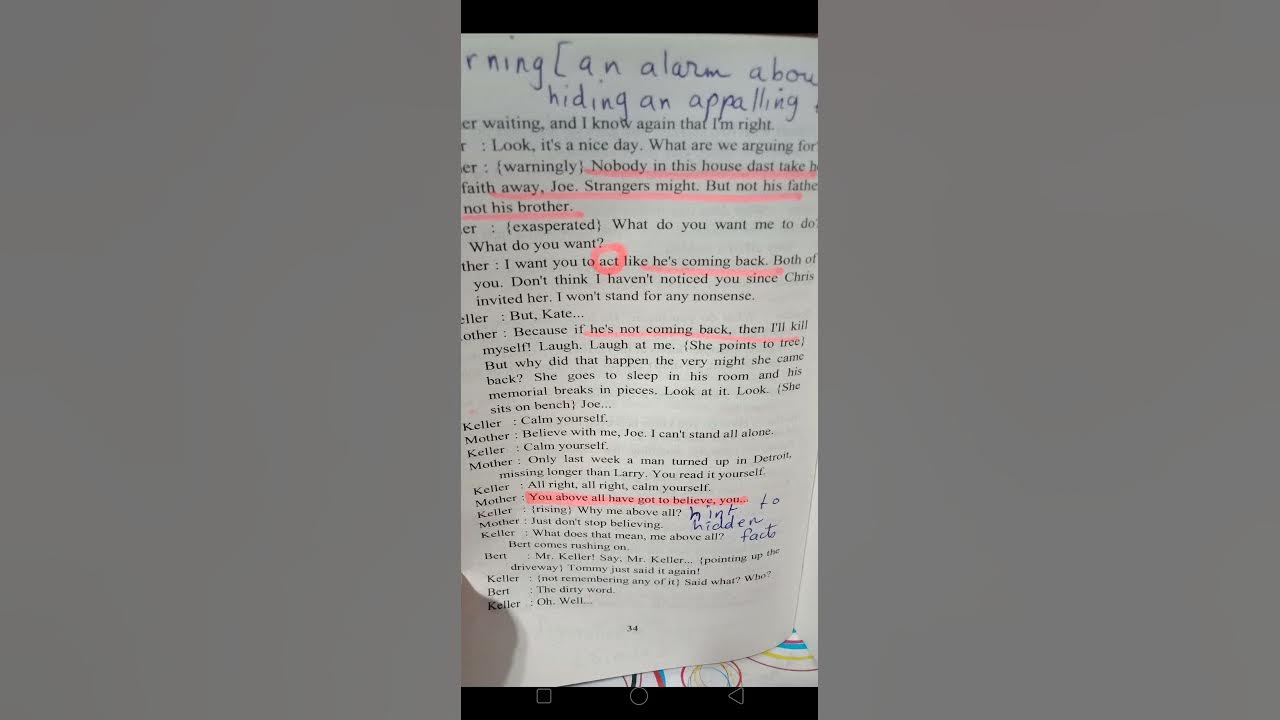 rning [an alarm abou
hiding an appalling
er waiting, and I know again that I'm right.
r : Look, it's a nice day. What are we arguing for
er : {warningly} Nobody in this house dast take h
faith away, Joe. Strangers might. But not his fathe
not his brother.
er : {exasperated} What do you want me to do?
What do you want?
ther : I want you to act like he's coming back. Both of
you. Don't think I haven't noticed you since Chris
invited her. I won't stand for any nonsense.
eller : But, Kate...
other : Because if he's not coming back, then I'll kill
myself! Laugh. Laugh at me. {She points to tree}
But why did that happen the very night she came
back? She goes to sleep in his room and his
memorial breaks in pieces. Look at it. Look. {She
sits on bench} Joe...
Keller : Calm yourself.
Mother : Believe with me, Joe. I can't stand all alone.
Keller : Calm yourself.
Mother : Only last week a man turned up in Detroit,
missing longer than Larry. You read it yourself.
Keller : All right, all right, calm yourself.
Mother : You above all have got to believe, you...
Keller : {rising} Why me above all? hint to
Mother : Just don't stop believing. hidden
Keller : What does that mean, me above all? fact
Bert comes rushing on.
Bert : Mr. Keller! Say, Mr. Keller... {pointing up the
driveway} Tommy just said it again!
Keller : {not remembering any of it} Said what? Who?
Bert : The dirty word.
Keller : Oh. Well...
34